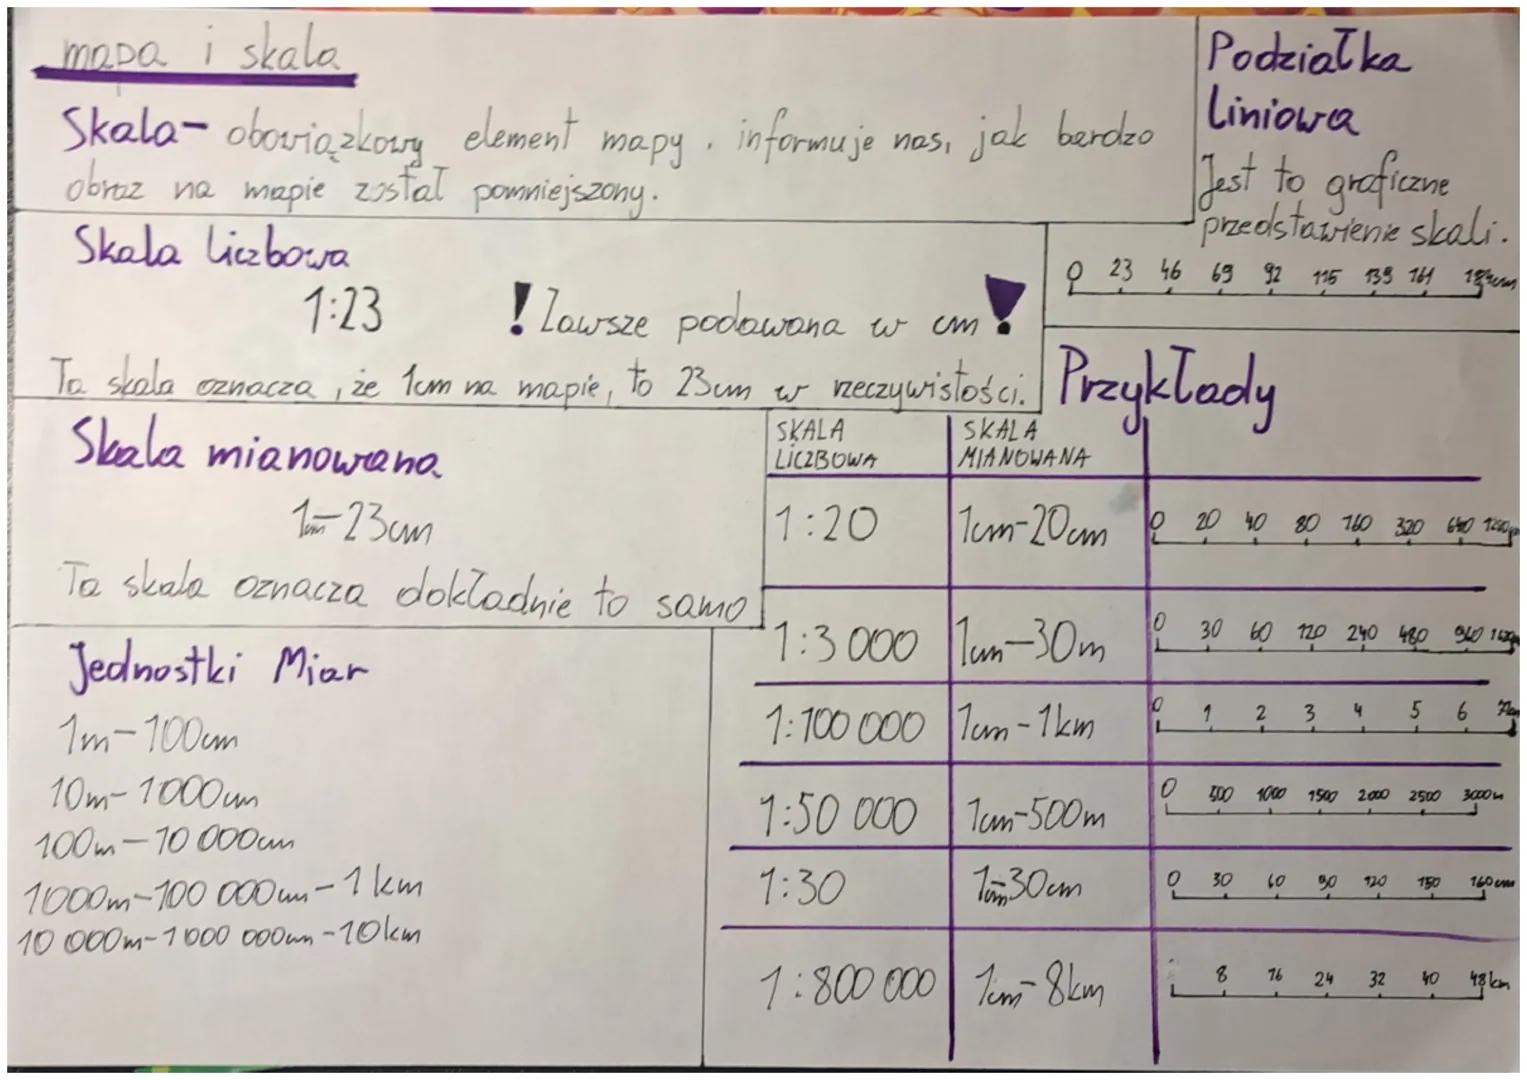 mapa i skala
Skala- obowiązkowy element mapy, informuje nas, jak bardzo
obraz na mapie został pomniejszony.
Podziałka
Liniowa
Jest to graficzne
przedstawienie skali.
0 23 46 69 92 115 139 161 184cm
Skala liczbowa
1:23
! Zawsze podawana w cm !
Ta skala oznacza, że 1cm na mapie, to 23cm w rzeczywistości.
Skala mianowana
1cm-23cm
Ta skala oznacza dokładnie to samo
Jednostki Miar
1m-100cm
10m-1000cm
100m-10 000cm
1000m-100 000cm-1km
10 000m-1000 000cm-10km
Przykłady
SKALA LICZBOWA
SKALA MIANOWANA
1:20 1cm-20cm 0 20 40 80 160 320 640
1:3 000 1cm-30m 0 30 60 120 240 480 960
1:100 000 1cm-1km 0 1 2 3 4 5 6 7km
1:50 000 1cm-500m 0 500 1000 1500 2000 2500 3000m
1:30 1cm-30cm 0 30 60 90 120 150 160cm
1:800 000 1cm-8km 8 16 24 32 40 48km